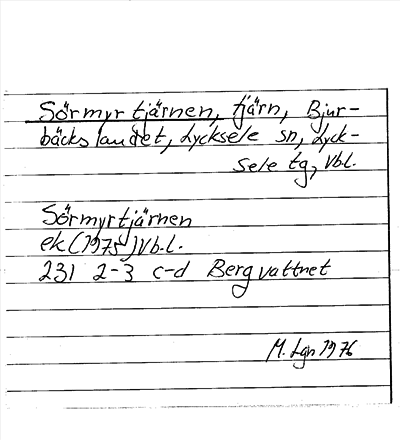 Sörmyrtjärnen, tjärn, Bjur-
bäckslandet, Lycksele sn, Lyck-
sele tg, Vb.l.
Sörmyrtjärnen
ek (1975) Vb.l.
231 2-3 c-d Bergvattnet
M. Lgn 1976